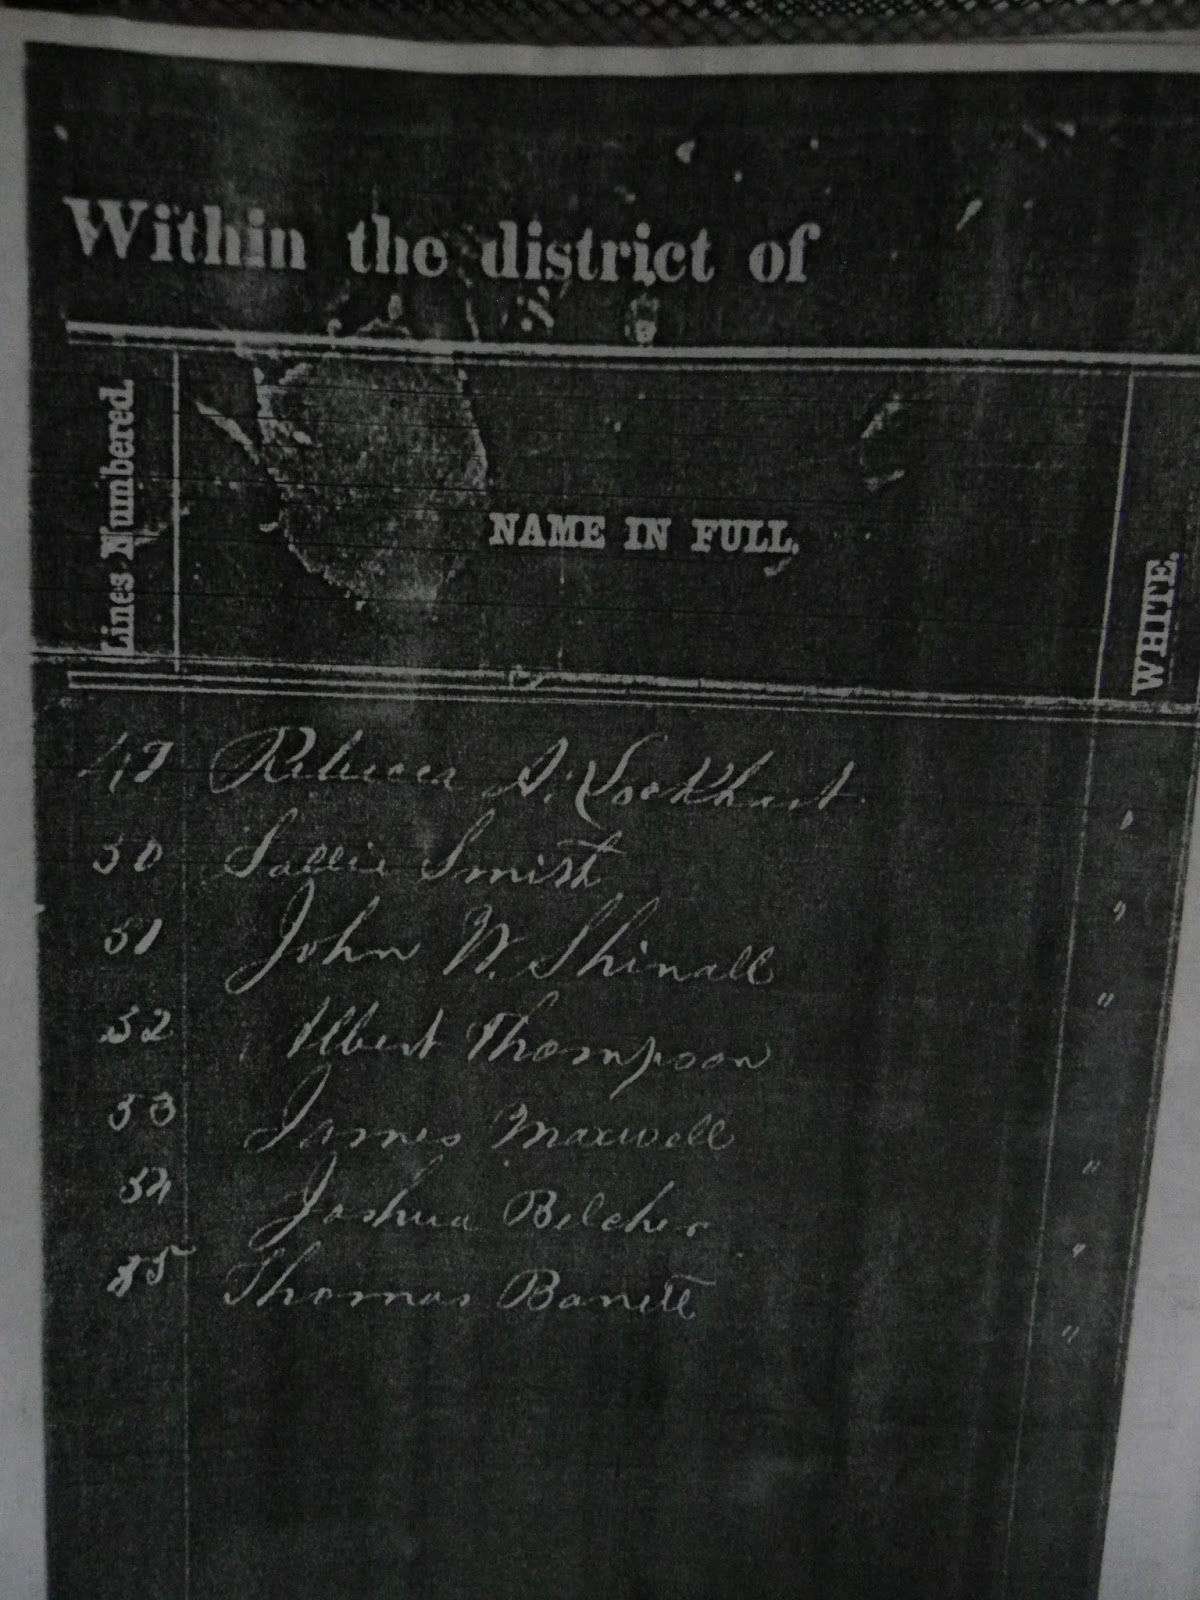 Within the district of
Lines Numbered.
NAME IN FULL.
WHITE.
49 Rebecca A. Lockhart "
50 Sallie Smith "
51 John W. Shinall "
52 Albert Thompson
53 James Maxwell "
54 Joshua Belcher "
55 Thomas Barrett "